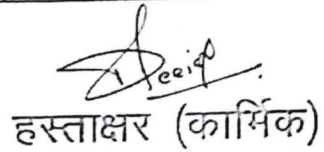 हस्ताक्षर (कार्मिक)